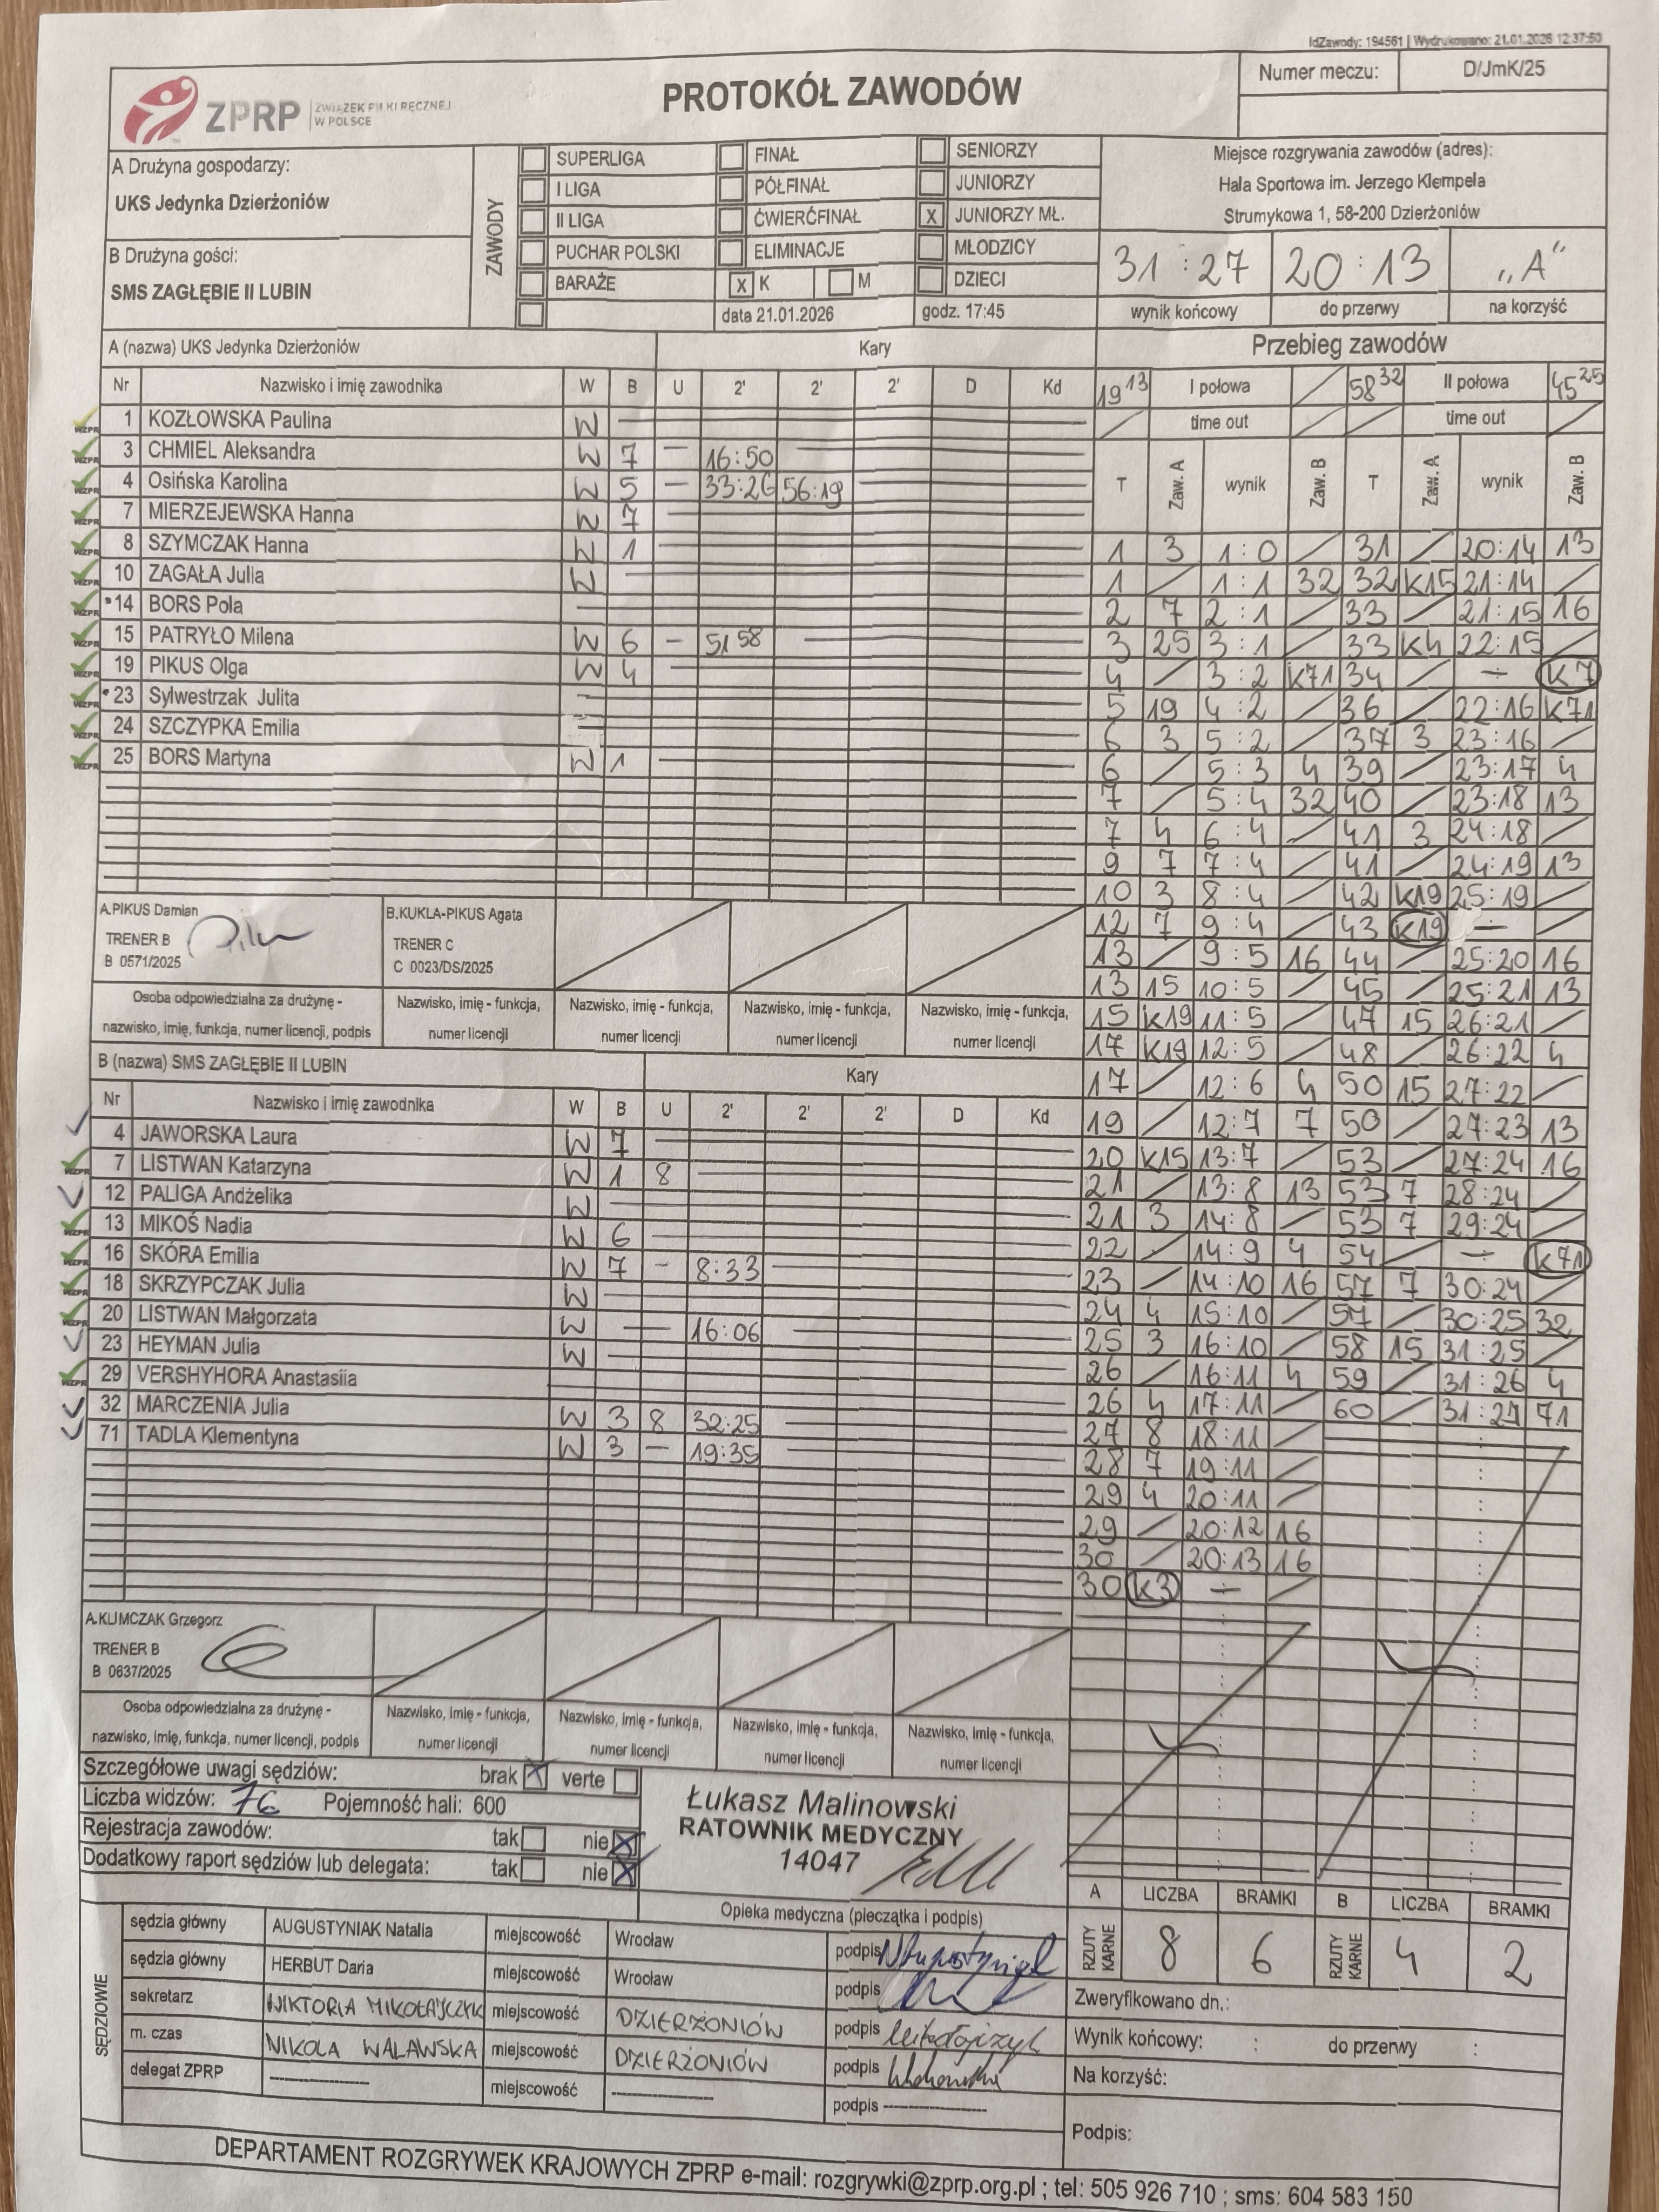 IdZawody: 194561 | Wydrukowano: 21.01.2026 12:37:50
ZPRP ZWIĄZEK PIŁKI RĘCZNEJ W POLSCE
PROTOKÓŁ ZAWODÓW
Numer meczu: D/JmK/25
A Drużyna gospodarzy:
UKS Jedynka Dzierżoniów
B Drużyna gości:
SMS ZAGŁĘBIE II LUBIN
ZAWODY
SUPERLIGA FINAŁ SENIORZY
I LIGA PÓŁFINAŁ JUNIORZY
II LIGA ĆWIERĆFINAŁ X JUNIORZY MŁ.
PUCHAR POLSKI ELIMINACJE MŁODZICY
BARAŻE X K M DZIECI
data 21.01.2026 godz. 17:45
Miejsce rozgrywania zawodów (adres):
Hala Sportowa im. Jerzego Klempela
Strumykowa 1, 58-200 Dzierżoniów
31 : 27 20 : 13 „A”
wynik końcowy do przerwy na korzyść
A (nazwa) UKS Jedynka Dzierżoniów Kary
Nr Nazwisko i imię zawodnika W B U 2' 2' 2' D Kd
1 KOZŁOWSKA Paulina W
3 CHMIEL Aleksandra W 7 — 16:50
4 Osińska Karolina W 5 — 33:26 56:19
7 MIERZEJEWSKA Hanna W 7
8 SZYMCZAK Hanna W 1
10 ZAGAŁA Julia W
14 BORS Pola
15 PATRYŁO Milena W 6 — 51 58
19 PIKUS Olga W 4
23 Sylwestrzak Julita
24 SZCZYPKA Emilia
25 BORS Martyna W 1
A.PIKUS Damian
TRENER B
B 0571/2025
B.KUKLA-PIKUS Agata
TRENER C
C 0023/DS/2025
Osoba odpowiedzialna za drużynę - nazwisko, imię, funkcja, numer licencji, podpis
Nazwisko, imię - funkcja, numer licencji
Nazwisko, imię - funkcja, numer licencji
Nazwisko, imię - funkcja, numer licencji
Nazwisko, imię - funkcja, numer licencji
B (nazwa) SMS ZAGŁĘBIE II LUBIN Kary
Nr Nazwisko i imię zawodnika W B U 2' 2' 2' D Kd
4 JAWORSKA Laura W 7
7 LISTWAN Katarzyna W 1 8
12 PALIGA Andżelika W
13 MIKOŚ Nadia W 6
16 SKÓRA Emilia W 7 - 8:33
18 SKRZYPCZAK Julia W
20 LISTWAN Małgorzata W — 16:06
23 HEYMAN Julia W
29 VERSHYHORA Anastasiia
32 MARCZENIA Julia W 3 8 32:25
71 TADLA Klementyna W 3 — 19:35
A.KLIMCZAK Grzegorz
TRENER B
B 0637/2025
Osoba odpowiedzialna za drużynę - nazwisko, imię, funkcja, numer licencji, podpis
Nazwisko, imię - funkcja, numer licencji
Nazwisko, imię - funkcja, numer licencji
Nazwisko, imię - funkcja, numer licencji
Nazwisko, imię - funkcja, numer licencji
Przebieg zawodów
19 13 I połowa / 58 32 II połowa 45 25
/ time out / / time out /
T Zaw. A wynik Zaw. B T Zaw. A wynik Zaw. B
1 3 1:0 / 31 / 20:14 13
1 / 1:1 32 32 K15 21:14 /
2 7 2:1 / 33 / 21:15 16
3 25 3:1 / 33 K4 22:15 /
4 / 3:2 K71 34 / — K7
5 19 4:2 / 36 / 22:16 K71
6 3 5:2 / 37 3 23:16 /
6 / 5:3 4 39 / 23:17 4
7 / 5:4 32 40 / 23:18 13
7 4 6:4 / 41 3 24:18 /
9 7 7:4 / 41 / 24:19 13
10 3 8:4 / 42 K19 25:19 /
12 7 9:4 / 43 K19 — /
13 / 9:5 16 44 / 25:20 16
13 15 10:5 / 45 / 25:21 13
15 K19 11:5 / 47 15 26:21 /
17 K19 12:5 / 48 / 26:22 4
17 / 12:6 4 50 15 27:22 /
19 / 12:7 7 50 / 27:23 13
20 K15 13:7 / 53 / 27:24 16
21 / 13:8 13 53 7 28:24 /
21 3 14:8 / 53 7 29:24 /
22 / 14:9 4 54 / — K71
23 / 14:10 16 57 7 30:24 /
24 4 15:10 / 57 / 30:25 32
25 3 16:10 / 58 15 31:25 /
26 / 16:11 4 59 / 31:26 4
26 4 17:11 / 60 / 31:27 71
27 8 18:11 /
28 7 19:11 /
29 4 20:11 /
29 / 20:12 16
30 / 20:13 16
30 K3 — /
Szczegółowe uwagi sędziów: brak X verte
Liczba widzów: 76 Pojemność hali: 600
Rejestracja zawodów: tak nie X
Dodatkowy raport sędziów lub delegata: tak nie X
Łukasz Malinowski
RATOWNIK MEDYCZNY
14047
Opieka medyczna (pieczątka i podpis)
A LICZBA BRAMKI B LICZBA BRAMKI
RZUTY KARNE 8 6 RZUTY KARNE 4 2
SĘDZIOWIE
sędzia główny AUGUSTYNIAK Natalia miejscowość Wrocław podpis
sędzia główny HERBUT Daria miejscowość Wrocław podpis
sekretarz WIKTORIA MIKOŁAJCZYK miejscowość DZIERŻONIÓW podpis
m. czas NIKOLA WALAWSKA miejscowość DZIERŻONIÓW podpis
delegat ZPRP miejscowość podpis
Zweryfikowano dn.:
Wynik końcowy: : do przerwy :
Na korzyść:
Podpis:
DEPARTAMENT ROZGRYWEK KRAJOWYCH ZPRP e-mail: rozgrywki@zprp.org.pl ; tel: 505 926 710 ; sms: 604 583 150